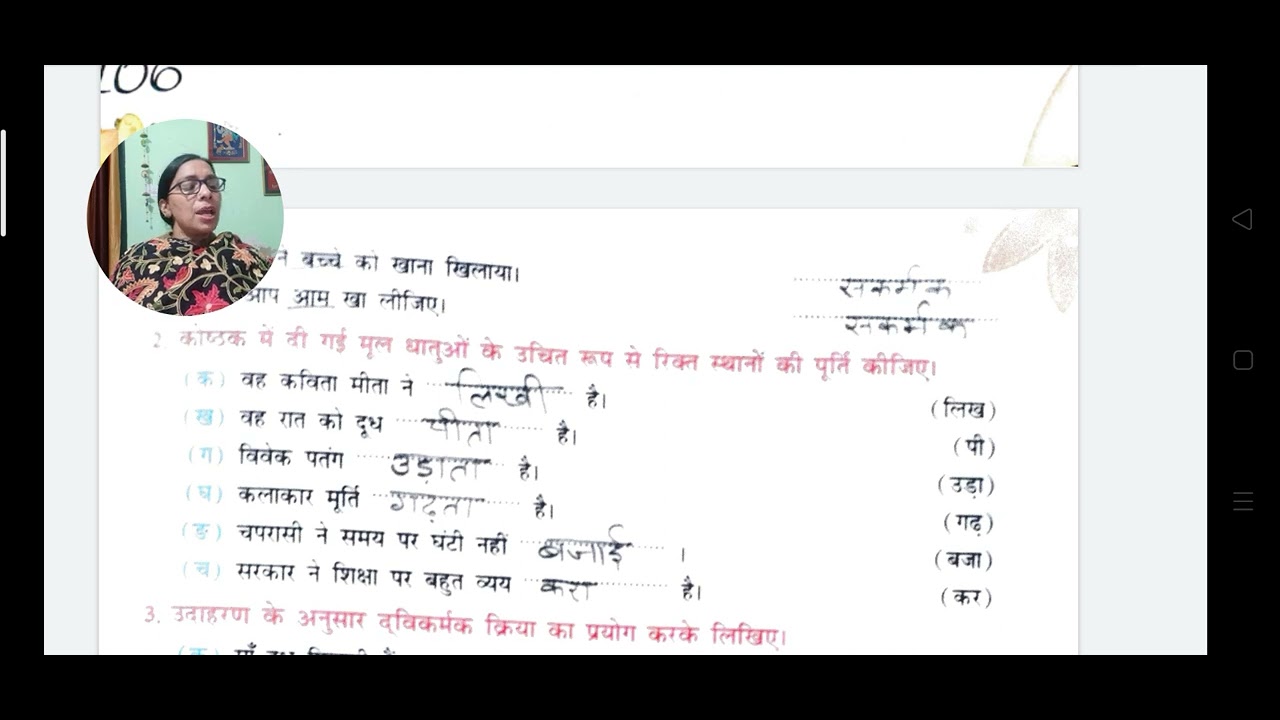 106
ने बच्चे को खाना खिलाया। सकर्मक
आप आम खा लीजिए। सकर्मक
2. कोष्ठक में दी गई मूल धातुओं के उचित रूप से रिक्त स्थानों की पूर्ति कीजिए।
(क) वह कविता मीता ने लिखी है। (लिख)
(ख) वह रात को दूध पीता है। (पी)
(ग) विवेक पतंग उड़ाता है। (उड़ा)
(घ) कलाकार मूर्ति गढ़ता है। (गढ़)
(ङ) चपरासी ने समय पर घंटी नहीं बजाई । (बजा)
(च) सरकार ने शिक्षा पर बहुत व्यय करा है। (कर)
3. उदाहरण के अनुसार द्विकर्मक क्रिया का प्रयोग करके लिखिए।